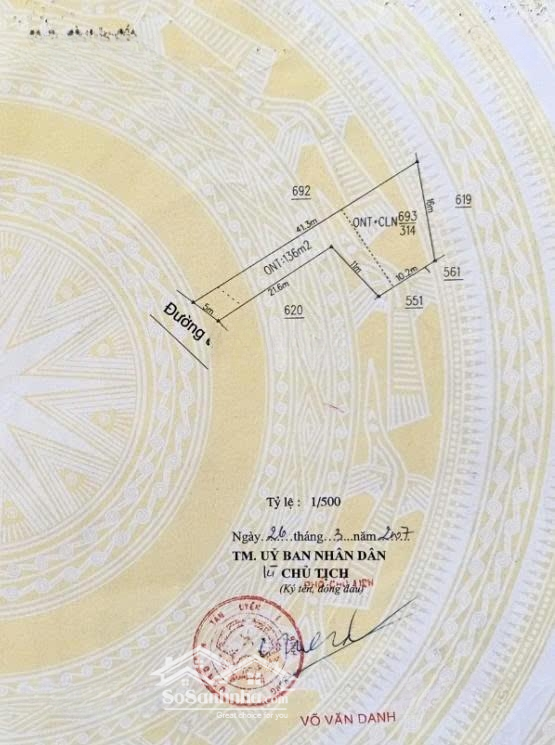 692
619
16m
ONT+CLN 693
314
41.3m
ONT:136m2
11m
10.2m
561
551
21.6m
620
5m
Đường
Tỷ lệ : 1/500
Ngày 26 tháng 3 năm 2007
TM. UỶ BAN NHÂN DÂN
KT CHỦ TỊCH
PHÓ CHỦ TỊCH
(Ký tên, đóng dấu)
TÂN UYÊN
SoSanhNha.com
Great choice for you
VÕ VĂN DANH